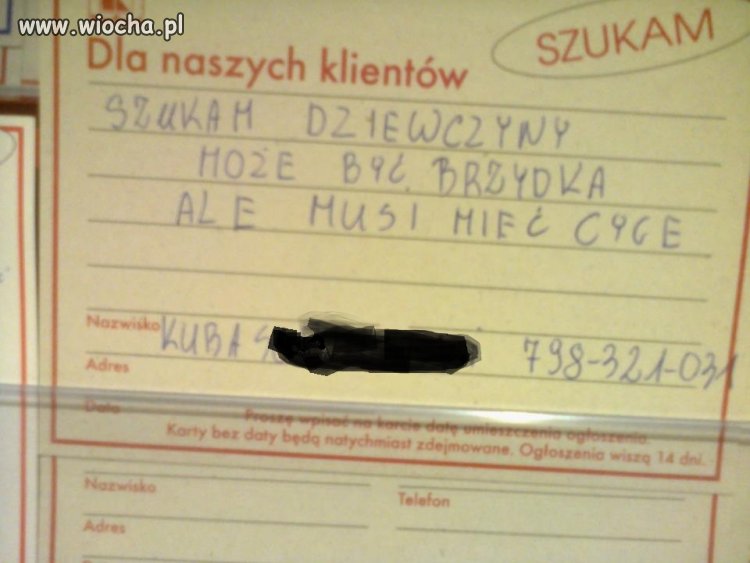 www.wiocha.pl
SZUKAM
Dla naszych klientów
SZUKAM DZIEWCZYNY
MOŻE BYĆ BRZYDKA
ALE MUSI MIEĆ CYCE
Nazwisko KUBA 798-321-031
Adres
Data Proszę wpisać na karcie datę umieszczenia ogłoszenia.
Karty bez daty będą natychmiast zdejmowane. Ogłoszenia wiszą 14 dni.
Nazwisko Telefon
Adres